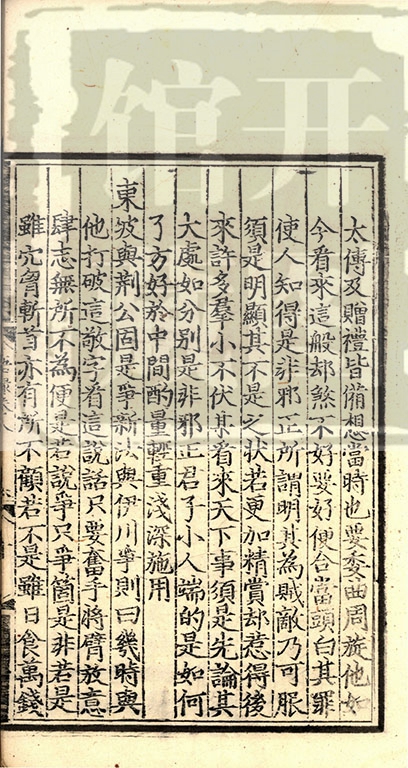 太傅及贈禮皆備想當時也要委曲周旋他如
今看來這般却煞不好要好便合當頭白其罪
使人知得是非邪正所謂明其為賊敵乃可服
須是明顯其不是之狀若更加精賞却惹得後
來許多羣小不伏某看來天下事須是先論其
大處如分別是非邪正君子小人端的是如何
了方好於中間酌量輕重淺深施用
東坡與荆公固是爭新法與伊川爭則曰幾時與
他打破這敬字看這說話只要奮手將臂放意
肆志無所不為便是若說爭只爭箇是非若是
雖亢胷斬首亦有所不顧若不是雖日食萬錢